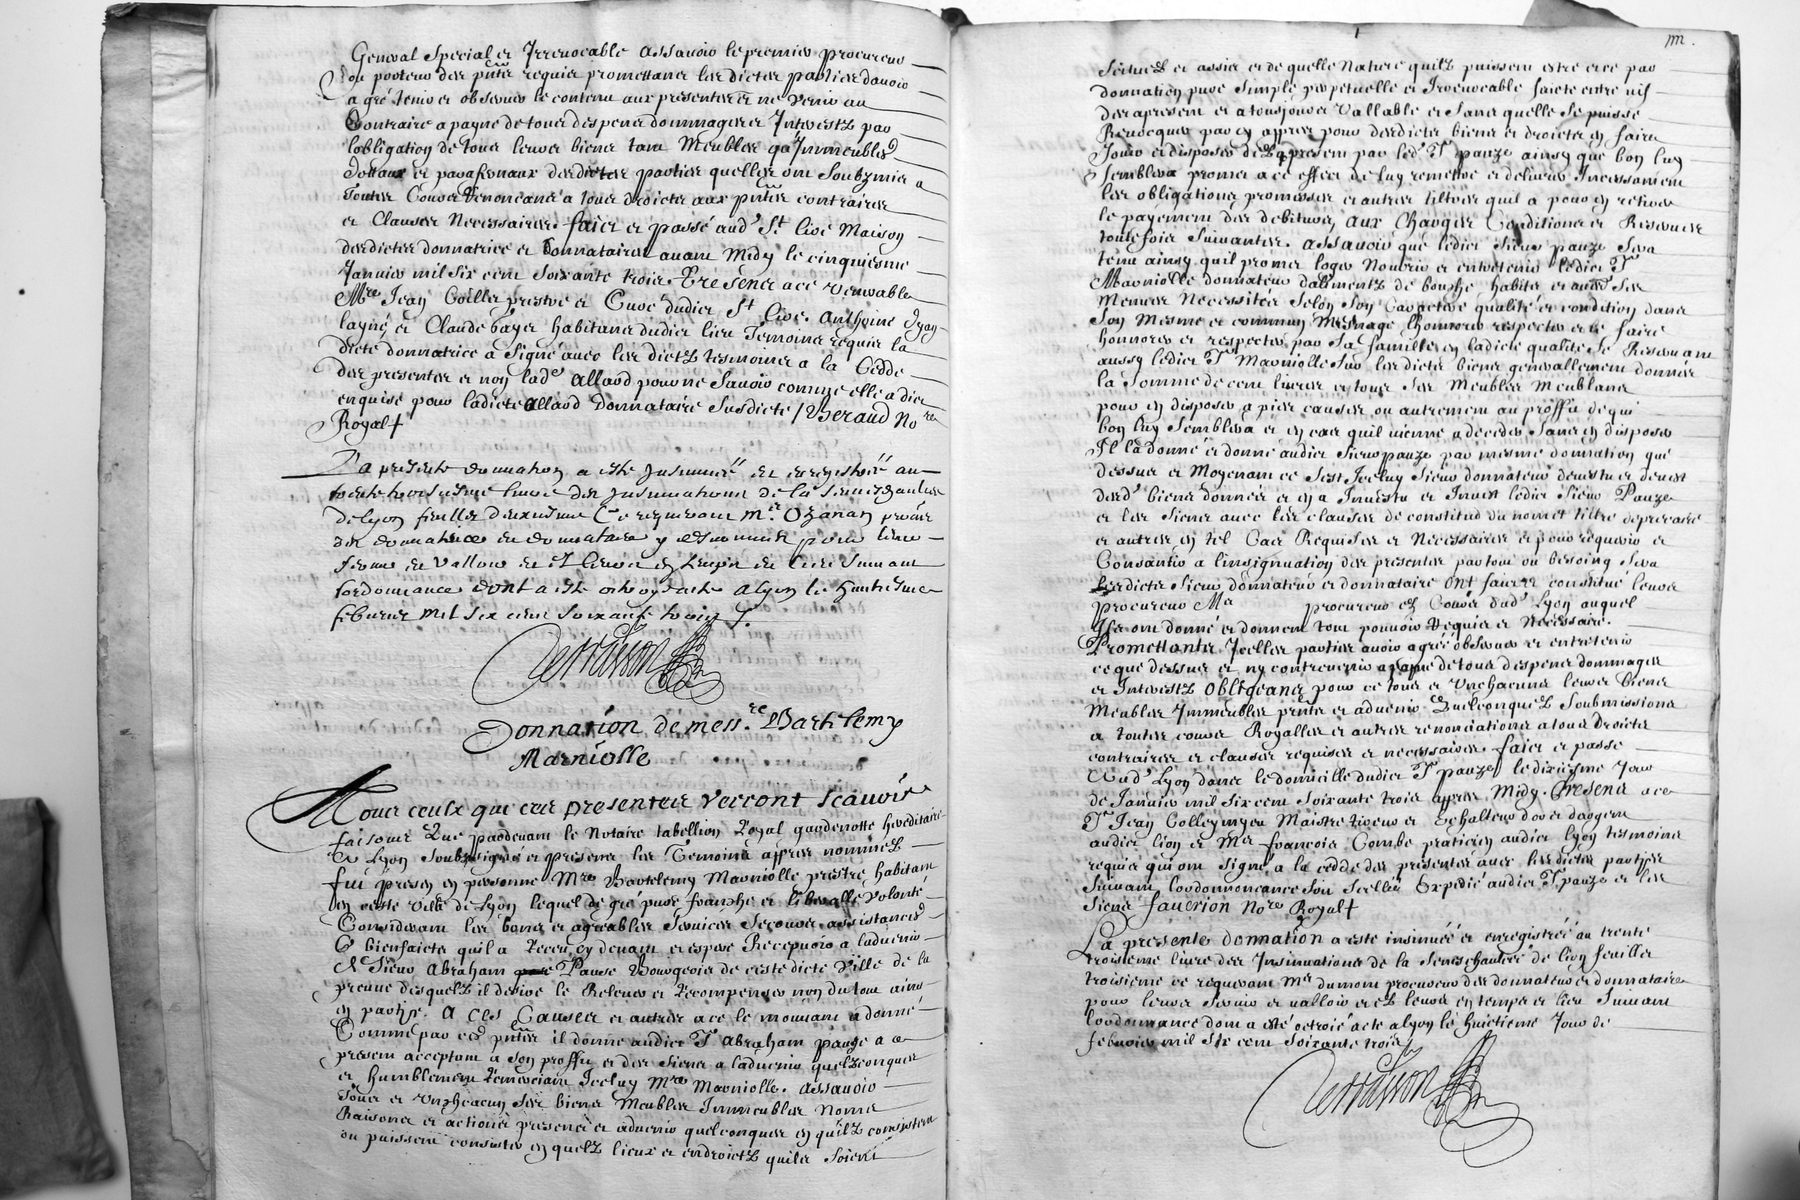 General special et Irrevocable assavoir le premier procureur
ou porteur des pntes requis promettans les dictes parties d'avoir
a gré tenir et observer le contenu aux presentes et ne venir au
Contraire a payne de tous despens dommages et Interestz par
l'obligation de tous leurs biens tant Meubles qu'Immeubles
dottaux et parafernaux desdictes parties quelles ont soubzmis a
Toutes Cours Renonceans a tous droicts aux pntes contraires
et Clauses Necessaires. faict et passé aud. St Cire Maison
desdictes donnatrice et donnataires avant Midy le cinquiesme
Janvier mil six cent soixante trois. Presens a ce venerable
Mre Jean prestre et Curé dudict St Cire. Anthoine
et Claude habitans dudict lieu Temoins requis la
dicte donnatrice a signé avec les dictz tesmoins a la Cedde
des presentes et non lade Allard pour ne scavoir comme elle a dict
enquise pour ladicte Allard donnataire susdicte / Beraud Nore
Royal
La presente donnation a este Insinuee et enregistree au
trente troisiesme livre des Insinuations de la Seneschaulsee
de Lyon feuillet deuxiesme Ce requerant Mr Ozanan procur
des donnatrice et donnataire y pour leur
servir et valloir et et leurs en temps et lieu suivant
l'ordonnance dont a este octroye acte a Lyon le huictiesme
febvrier mil six cens soixante trois
Donnation de messre Barthlemy
Marniolle
A tous ceulx que ces presentes verront scavoir
faisons Que pardevant le Notaire tabellion Royal gardenotte hereditaire
A Lyon soubzsigné et presens les Temoins appres nommés
fut present en personne Mre Bartelemy Marniolle prestre habitant
en ceste ville de Lyon lequel de gré pure franche et liberalle volonté
Considerant les bons et agreables services secours assistances
& bienfaicts qu'il a receu cy devant et espere Recepvoir a ladvenir
de sieur Abraham Pauze Bourgeois de ceste dicte ville de la
preuve desquelz il desire le Relever et Recompenser non du tout ains
en partye. A Ces Causes et autres a ce le mouvant a donné
Comme par ces pntes il donne audict Sr Abraham pauze a ce
present acceptant a son proffit et des siens a ladvenir quelzconques
et humblement Remerciant Icelluy Mre Marniolle. Assavoir
Tous et Unchacuns ses biens Meubles Immeubles Noms
Raisons et actions presens et advenir quelconques en quilz consistent
ou puissent consister en quelz lieux et endroictz quils soient
scitués et assis et de quelle Nature quilz puissent estre et ce par
donnation pure simple perpetuelle et Irrevocable faicte entre vifs
des apresent et atousjours Vallable et sans quelle se puisse
Revocquer par cy appres pour desdicts biens et droicts en faire
Jouir et disposer des a present par led. Sr pauze ainsy que bon luy
semblera promet a cet effect de luy remettre et delivrer Incessament
les obligations promesses et autres tiltres quil a pour en retirer
le payement des debiteurs, aux Charges Conditions et Reserves
toutefois suivantes. Assavoir que ledict sieur pauze sera
tenu ainsy quil promet loger Nourrir et entretenir ledict Sr
Marniolle donnateur d'aliments de bouche habits et aues ses
Menues Necessités selon son Caractere qualité et condition dans
son Mesme et commun Mesnage l'honnorer respecter et le faire
honnorer et respecter par sa famille en ladicte qualité. Se Reservant
aussy ledict Sr Marniolle sur lesdicts biens generallement donnés
la somme de cent livres et tous ses Meubles Meublans
pour en disposer a pies causes ou autrement au proffit de qui
bon luy semblera et en cas quil vienne a deceder sans en disposer
Il la donné et donne audict sieur pauze par mesme donnation que
dessus et Moyenant ce s'est Icelluy sieur donnateur demis et devest
desd. biens donnés et en a Investu et Invest ledict sieur Pauze
et les siens avec les clauses de constitud du nom et tiltre de precaire
et autres en tel Cas Requises et Necessaires et pour requerir et
Consantir a l'insignuation des presentes partout ou besoing sera
Lesdicts sieurs donnateur et donnataire ont faict et constitué leurs
procureurs Mes procureurs es Cours dud. Lyon auquel
Ils ont donné et donnent tout pouvoir requis et Necessaire.
Promettants Icelles parties avoir agréé observer et entretenir
ce que dessus et ny contrevenir a payne de tous despens dommages
et Interestz Obligeans pour ce tous et Unchacuns leurs biens
Meubles Immeubles pnts et advenir Quelconques soubmissions
a toutes cours Royalles et autres renonciations a tous droicts
contraires et clauses requises et necessaires. faict et passé
Aud. Lyon dans le domicille dudict Sr pauze le dixiesme Jour
de Janvier mil six cent soixante trois appres Midy. Presens a ce
Sr Jean Maistre tireur et d'or et d'argent
audict lion et Mre francois Combe praticien audict Lyon tesmoins
requis qui ont signé a la cedde des presentes avec lesdictes parties
suivant lordonnonance soit scellé Expedié audict Sr pauze et les
siens faverion Nore Royal
La presente donnation a este insinuée et enregistrée au trente
troisieme livre des Insinuations de la Seneschaucée de lion feuillet
troisieme ce requerant Mr dumont procureur des donnateur et donnataire
pour leurs servir et valloir et es leurs en temps et lieu suivant
l'ordonnance dont a été octroié acte a lyon le huictieme Jour de
febvrier mil six cent soixante trois